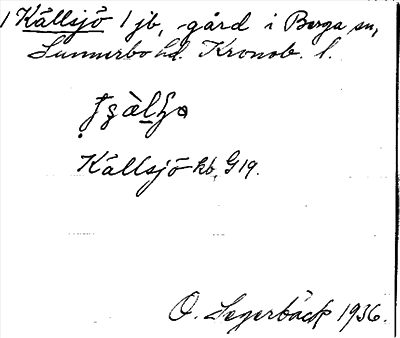 1 Källsjö 1 jb, gård i Berga sn,
Sunnerbo hd. Kronob. l.
Källsjö kb, G19.
O. Segerbäck 1936.